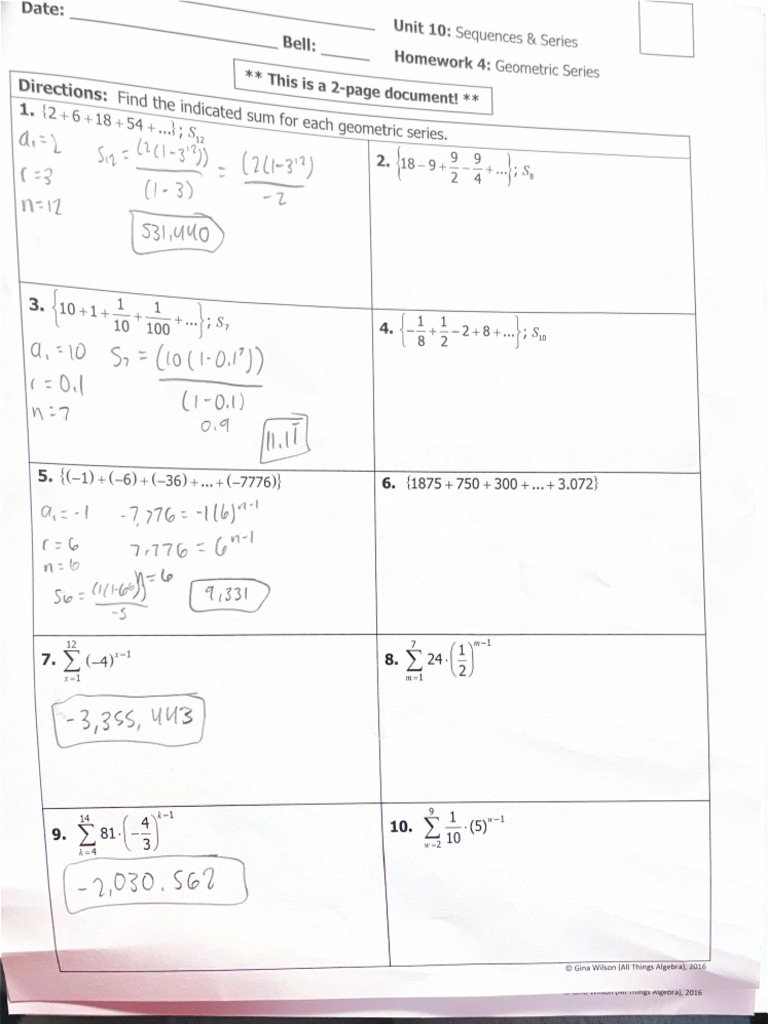 Date:
Bell:
Unit 10: Sequences & Series
Homework 4: Geometric Series
** This is a 2-page document! **
Directions: Find the indicated sum for each geometric series.
1. {2 + 6 + 18 + 54 + ...}; S₁₂
a₁ = 2
r = 3
n = 12
S₁₂ = (2(1-3¹²)) / (1-3) = (2(1-3¹²)) / -2
531,440
2. {18 - 9 + 9/2 - 9/4 + ...}; S₈
3. {10 + 1 + 1/10 + 1/100 + ...}; S₇
a₁ = 10
r = 0.1
n = 7
S₇ = (10(1-0.1⁷)) / (1-0.1)
0.9
11.11
4. {-1/8 + 1/2 - 2 + 8 + ...}; S₁₀
5. {(-1) + (-6) + (-36) + ... + (-7776)}
a₁ = -1
r = 6
n = 6
-7,776 = -1(6)ⁿ⁻¹
7,776 = 6ⁿ⁻¹
n = 6
S₆ = (1(1-6⁶)) / -5
9,331
6. {1875 + 750 + 300 + ... + 3.072}
7. 12 ∑ x=1 (-4)ˣ⁻¹
-3,355,443
8. 7 ∑ m=1 24·(1/2)ᵐ⁻¹
9. 14 ∑ k=4 81·(-4/3)ᵏ⁻¹
-2,030.562
10. 9 ∑ w=2 1/10·(5)ʷ⁻¹
© Gina Wilson (All Things Algebra), 2016
© Gina Wilson (All Things Algebra), 2016